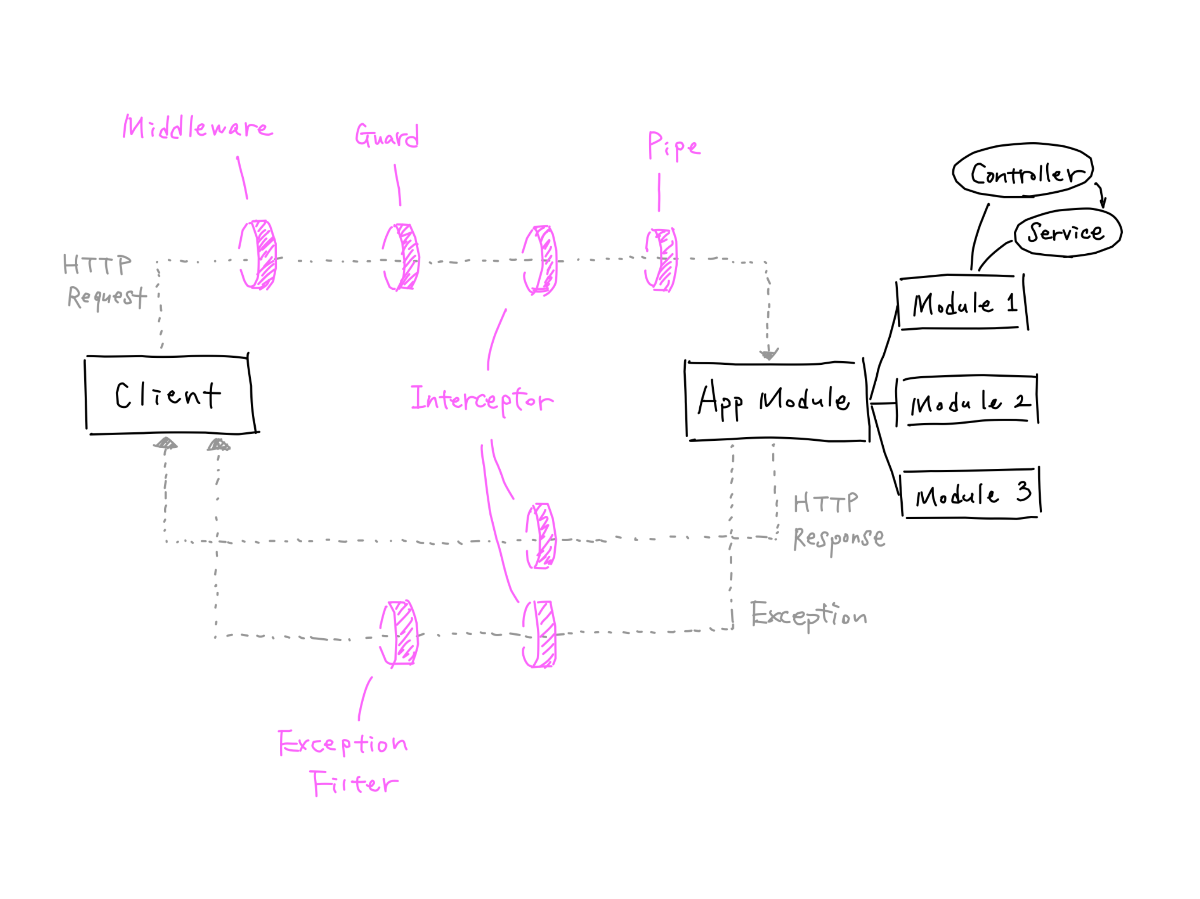 Middleware
Guard
Pipe
Controller
Service
HTTP
Request
Module 1
Client
Interceptor
App Module
Module 2
Module 3
HTTP
Response
Exception
Exception
Filter